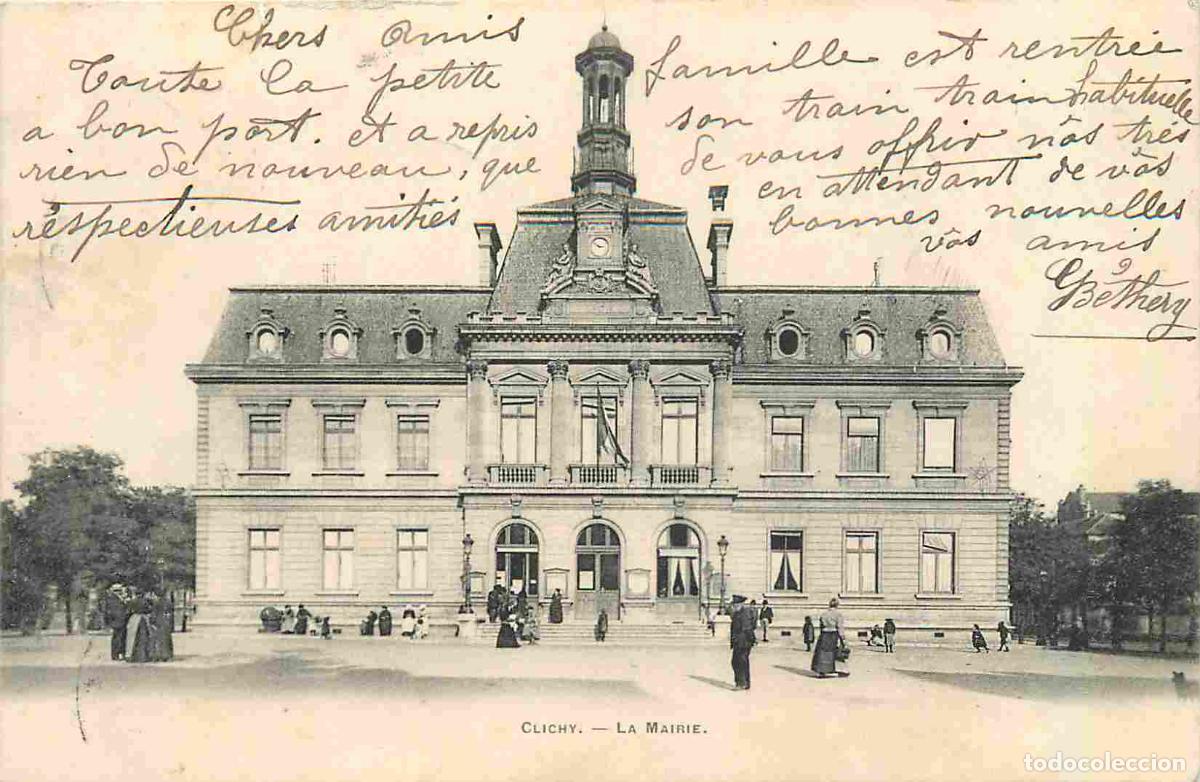 Chers Amis
Toute la petite famille est rentrée
a bon port. et a repris son train train habituelle
rien de nouveau, que de vous offrir nos très
respectieuses amitiés en attendant de vos
bonnes nouvelles
vos amis
Béthery
CLICHY. — LA MAIRIE.
todocoleccion